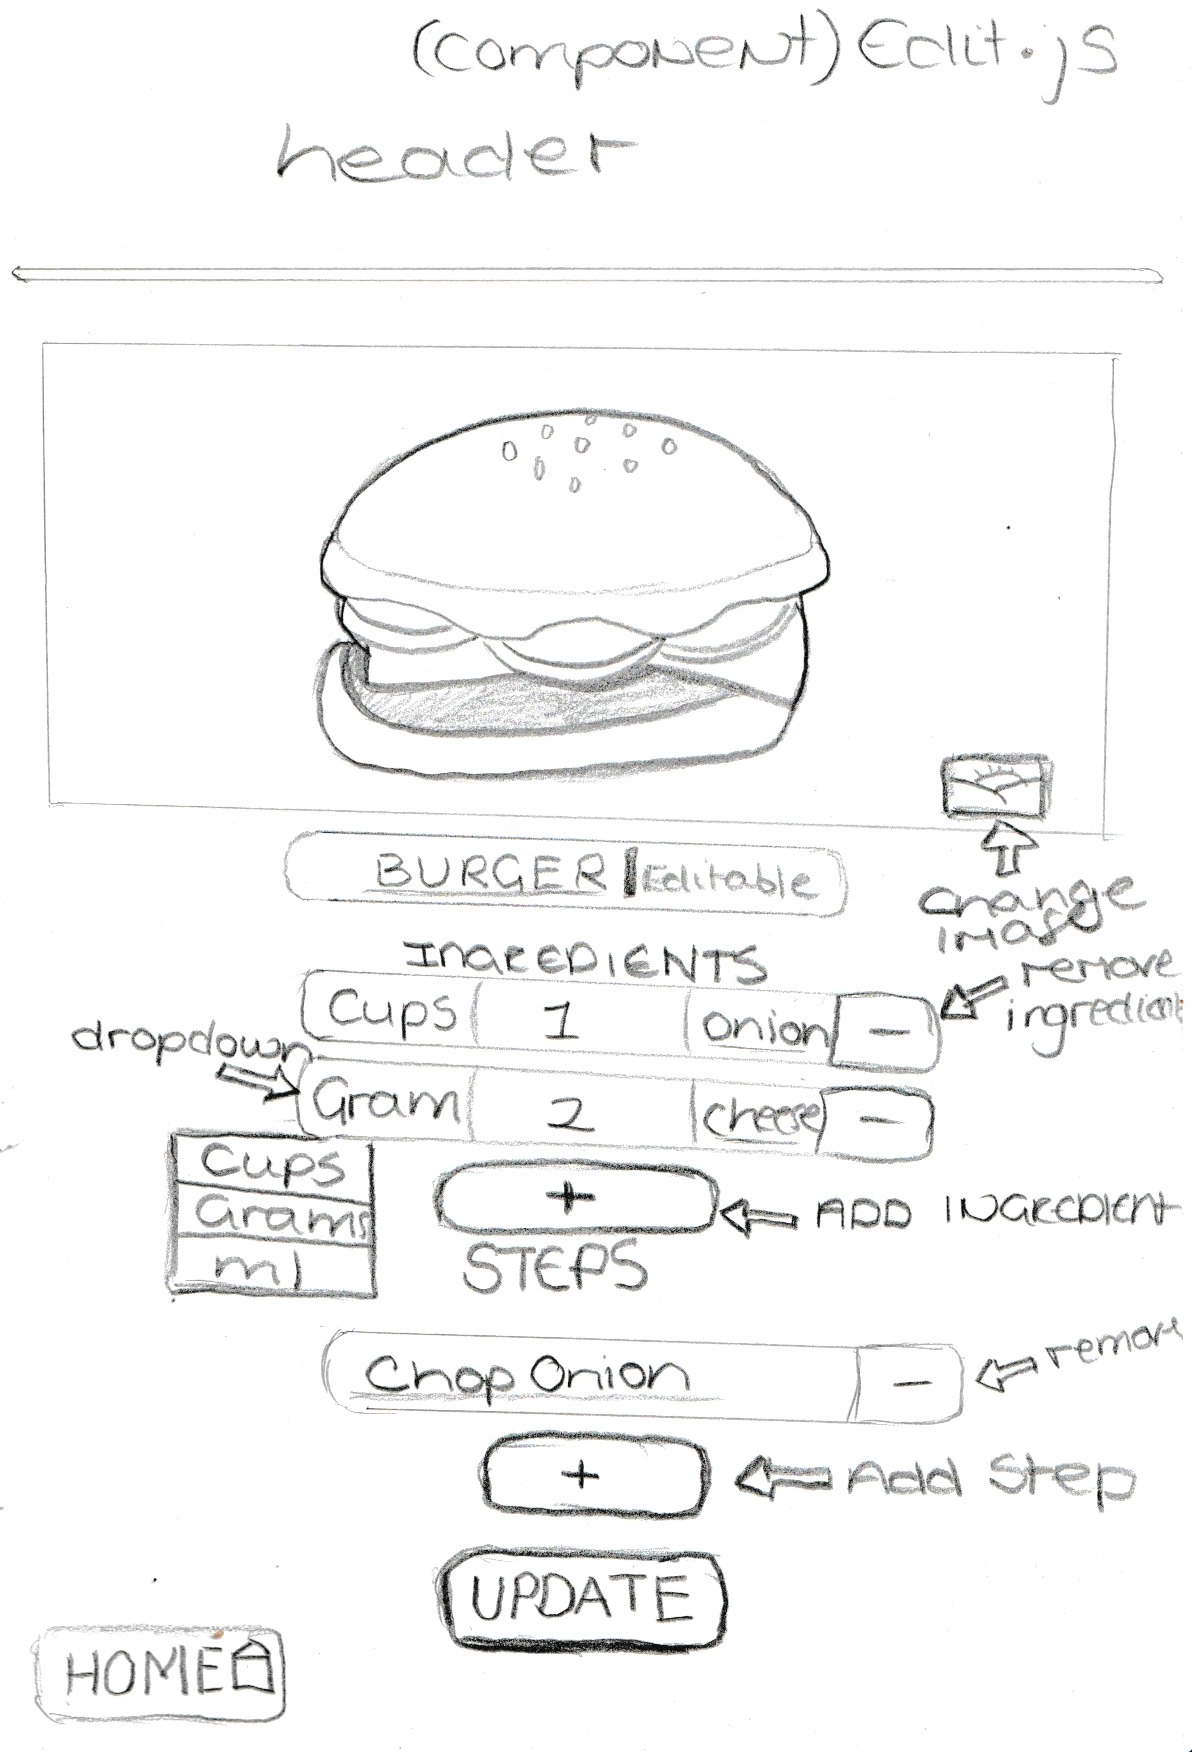 (component) Edit.js
header
BURGER Editable
change
image
INGREDIENTS
Cups 1 onion -
remove
ingredient
dropdown
Gram 2 cheese -
Cups
Grams
ml
+
ADD INGREDIENT
STEPS
Chop Onion -
remove
+
Add Step
UPDATE
HOME